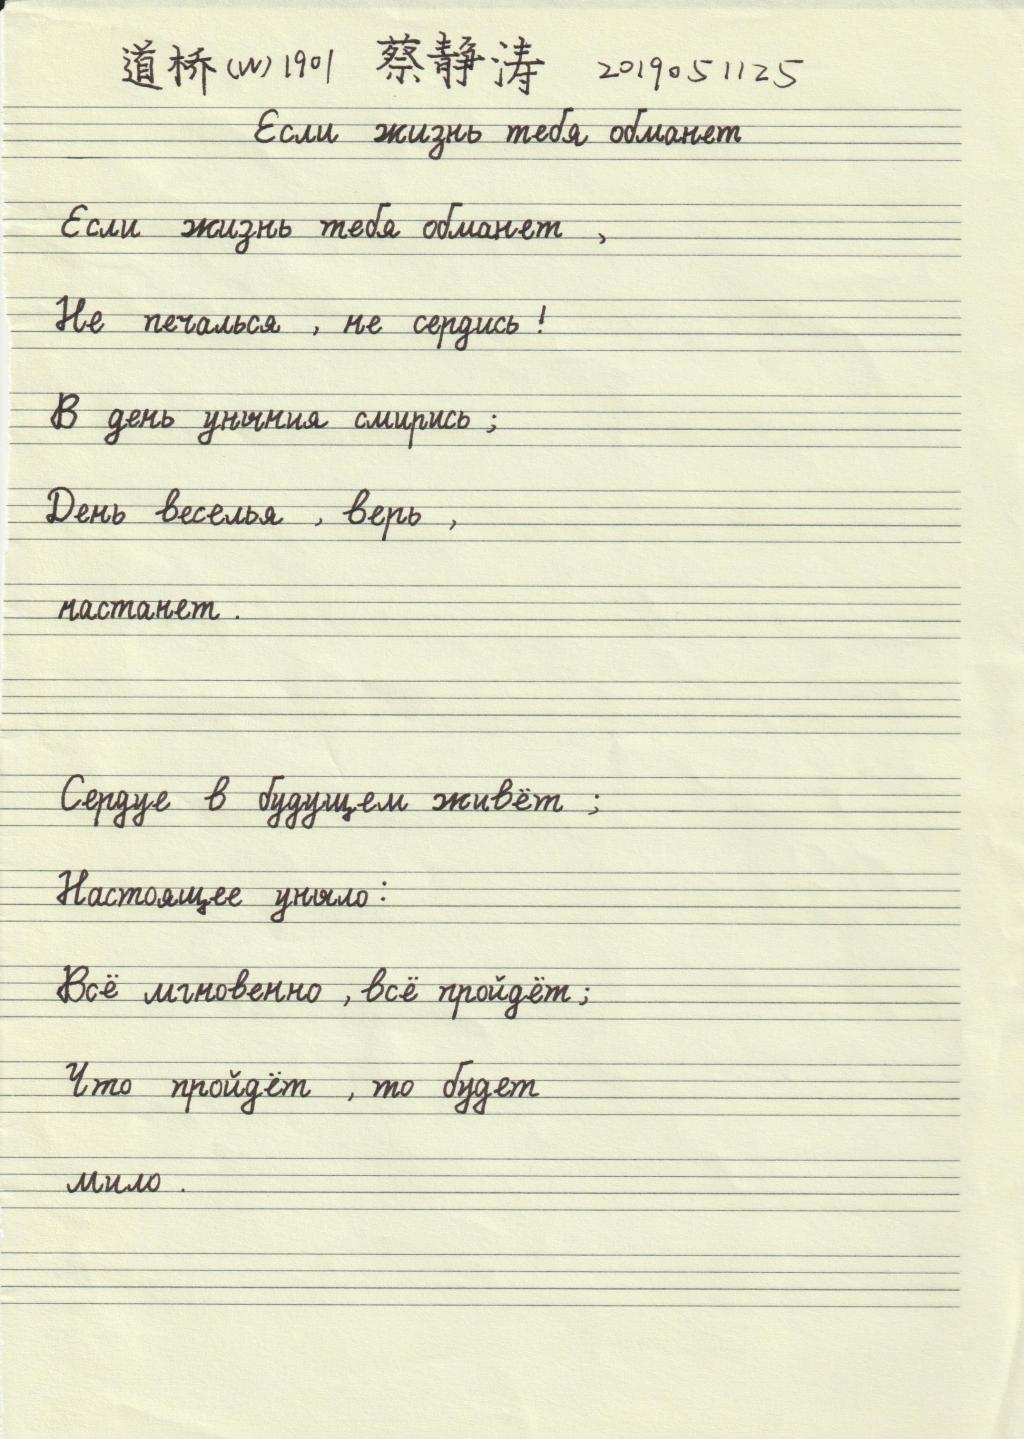 道桥(W)1901 蔡静涛 2019051125
Если жизнь тебя обманет
Если жизнь тебя обманет ,
Не печалься , не сердись !
В день уныния смирись ;
День веселья , верь ,
настанет .
Сердце в будущем живёт ;
Настоящее уныло :
Всё мгновенно , всё пройдёт ;
Что пройдёт , то будет
мило .